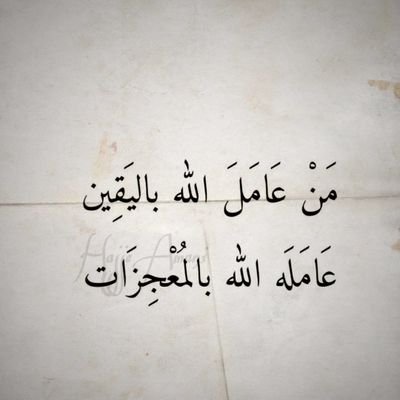 مَنْ عَامَلَ الله باليَقِين
عَامَلَه الله بالمُعْجِزَات